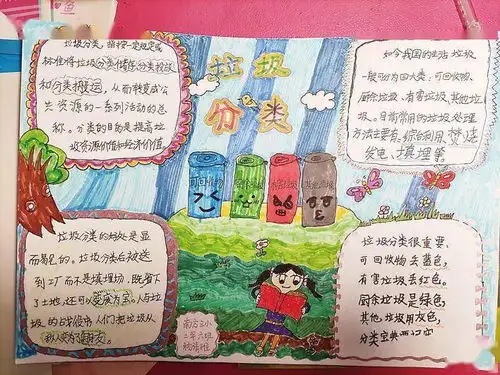 垃圾
分类
垃圾分类，指按一定规定或
标准将垃圾分类储存、分类投放
和分类搬运，从而转变成公
共资源的一系列活动的总
称。分类的目的是提高垃
圾资源价值和经济价值。
如今我国的生活垃圾
一般可分四大类：可回收物、
厨余垃圾、有害垃圾、其他垃
圾。目前常用的垃圾处理
方法主要有：综合利用、焚烧
发电、填埋等。
可回收物
厨余垃圾
有害垃圾
其他垃圾
垃圾分类的好处是显
而易见的。垃圾分类后被送
到工厂而不是填埋场，既省下
了土地，还可以变废为宝。人与垃
圾的战役中，人们把垃圾从
敌人变成了朋友。
垃圾分类很重要，
可回收物丢蓝色，
有害垃圾丢红色。
厨余垃圾是绿色，
其他垃圾用灰色，
分类宝典要记牢
二年六班